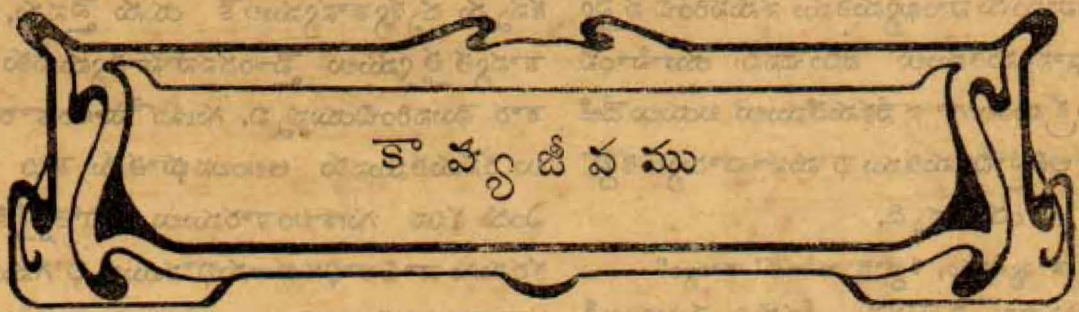 కావ్యజీవము